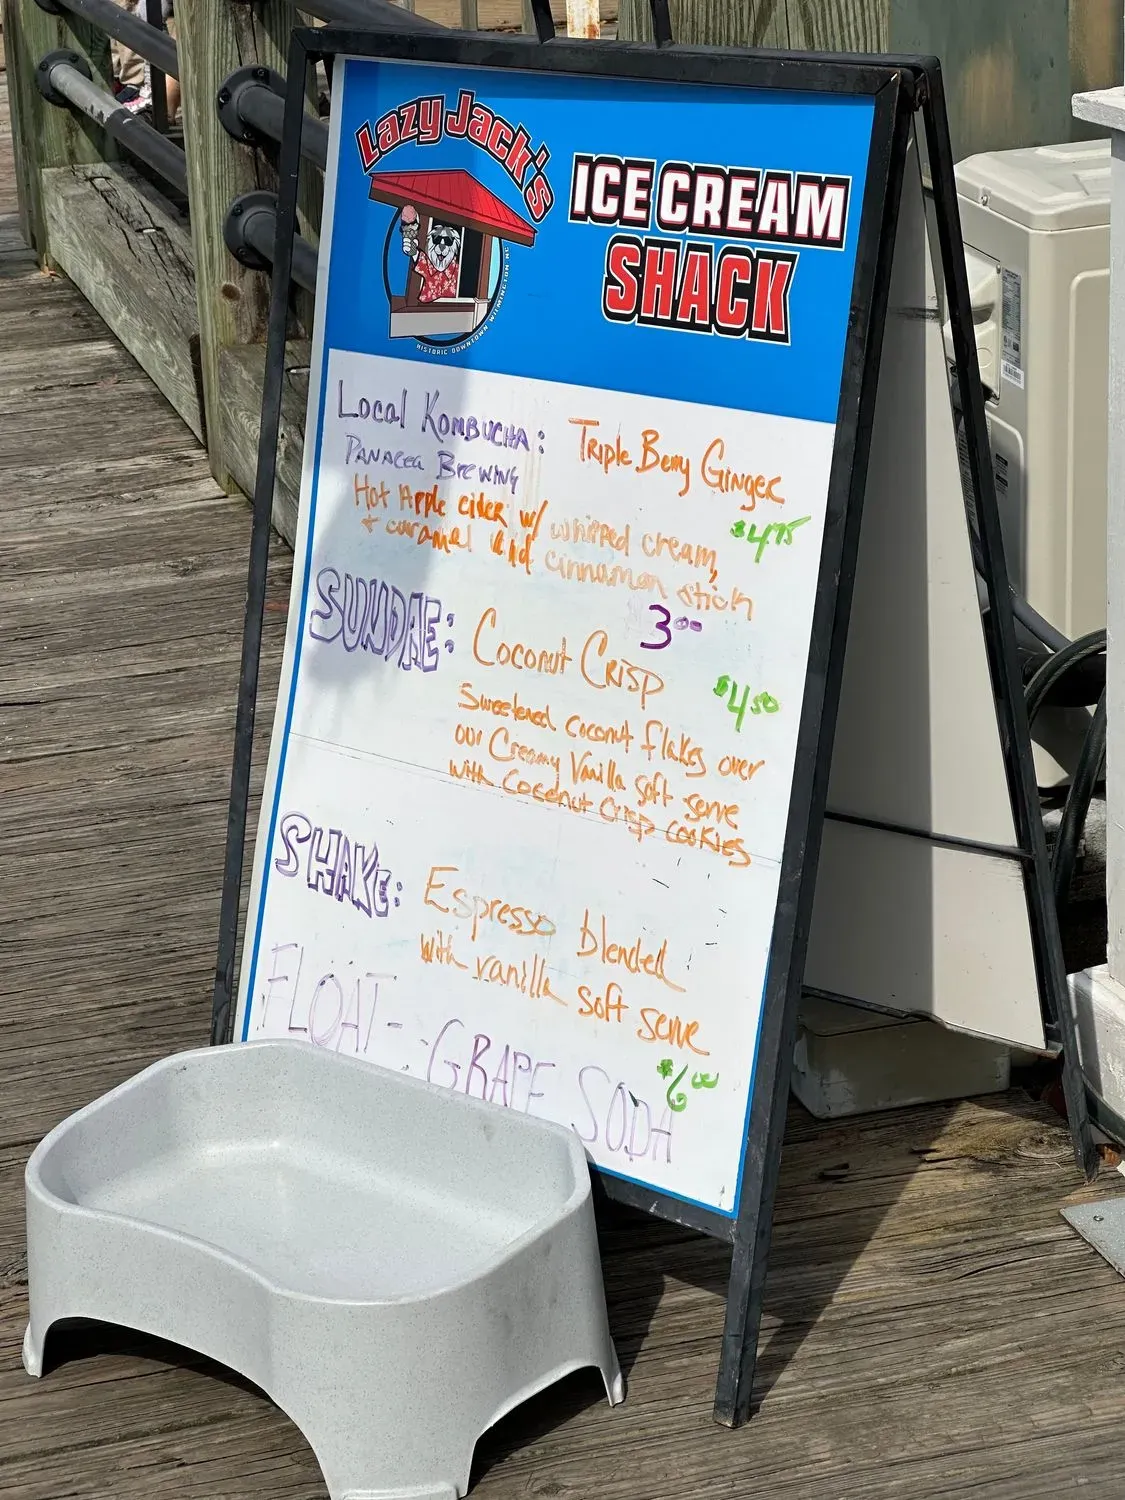 Lazy Jack's
ICE CREAM
SHACK
HISTORIC DOWNTOWN WILMINGTON NC
Local KOMBUCHA: TRIPLE Berry GINGER
PANACEA BREWING
$4.75
Hot Apple cider w/ whipped cream,
+ caramel and cinnamon stick
3.00
SUNDAE: Coconut CRISP
$4.50
Sweetened coconut flakes over
our Creamy Vanilla soft serve
with Coconut Crisp cookies
SHAKE: Espresso blended
with vanilla soft serve
$6.00
FLOAT - GRAPE SODA